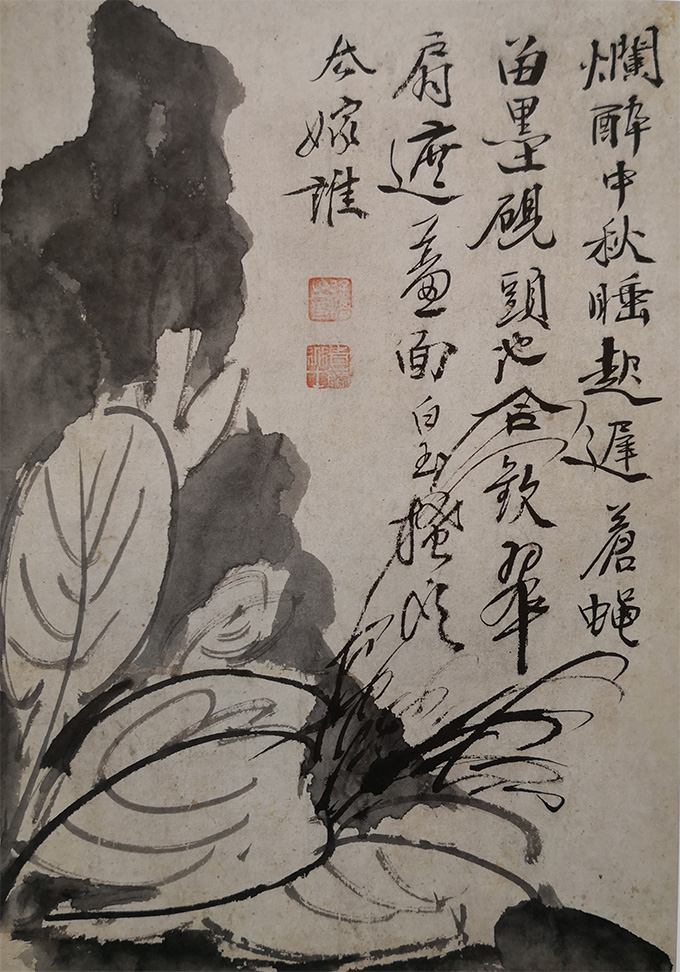 爛醉中秋睡起遲蒼蝇
留墨硯頭池合歡翠
扇遮羞面白玉搔頭
去嫁誰